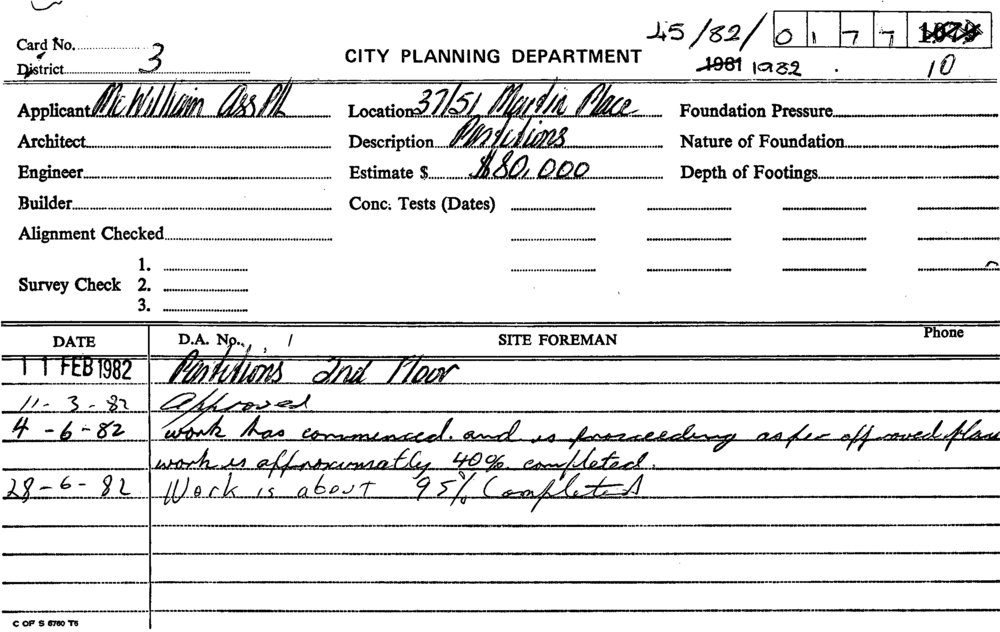 45/82/ 0 1 7 7
Card No.
District 3
CITY PLANNING DEPARTMENT
1981 1982 10
Applicant McWilliam Ass P/L
Location 37/51 Martin Place
Foundation Pressure
Architect
Description Partitions
Nature of Foundation
Engineer
Estimate $ $80,000
Depth of Footings
Builder
Conc. Tests (Dates)
Alignment Checked
Survey Check
1.
2.
3.
DATE
D.A. No.
SITE FOREMAN
Phone
11 FEB 1982 Partitions 2nd Floor
11-3-82 Approved
4-6-82 work has commenced. and is proceeding as per approved plans
work is approximatly 40% completed.
28-6-82 Work is about 95% Completed
C OF S 6760 T6